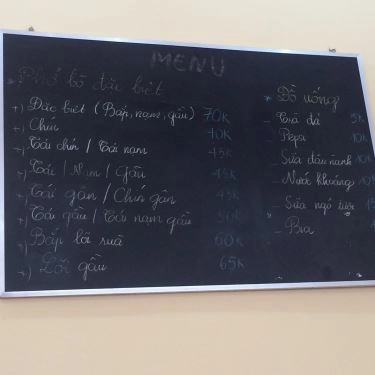 MENU
* Phở bò đặc biệt
+) Đặc biệt (Bắp, nạm, gầu) 70K
+) Chín 40K
+) Tái chín / Tái nạm 45K
+) Tái / Nạm / Gầu 45K
+) Tái gân / Chín gân 45K
+) Tái gầu / Tái nạm gầu 50K
+) Bắp lõi rùa 60K
+) Lõi gầu 65K
* Đồ uống
- Trà đá 5K
- Pepsi 10K
- Sữa đậu nành 10K
- Nước khoáng
- Sữa ngô tươi
- Bia